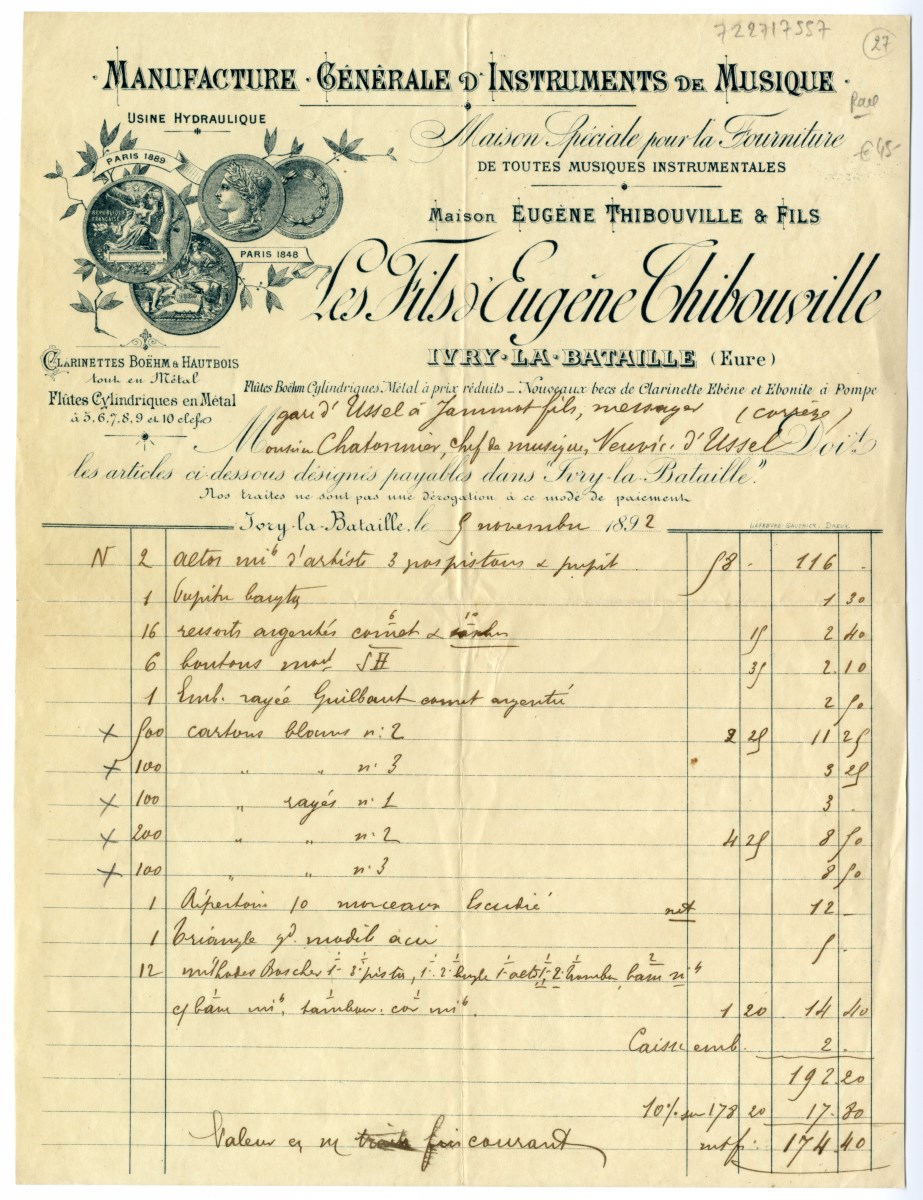 722717557
27
MANUFACTURE GÉNÉRALE D'INSTRUMENTS DE MUSIQUE
Rare
€ 45-
USINE HYDRAULIQUE
PARIS 1889
RÉPUBLIQUE FRANÇAISE
PARIS 1848
Maison Spéciale pour la Fourniture
DE TOUTES MUSIQUES INSTRUMENTALES
Maison EUGÈNE THIBOUVILLE & FILS
Les Fils d'Eugène Thibouville
IVRY-LA-BATAILLE (Eure)
CLARINETTES BOËHM & HAUTBOIS
tout en Métal
Flûtes Cylindriques en Métal
à 5, 6, 7, 8, 9 et 10 clefs
Flûtes Boëhm Cylindriques Métal à prix réduits _ Nouveaux becs de Clarinette Ebène et Ebonite à Pompe
gare d'Ussel à Jammot fils, messager (corrèze)
Monsieur Chatonnier, chef de musique, Neuvic d'Ussel Doit
les articles ci-dessous désignés payables dans "Ivry-la-Bataille".
Nos traites ne sont pas une dérogation à ce mode de paiement
Ivry-la-Bataille, le 5 novembre 1892
LEFEBVRE GAUTHIER. DREUX.
N 2 altos mib d'artiste 3 pospistons & pupit 58 . 116 .
1 Pupitre baryton 1 30
16 ressorts argentés 6 cornet & 10 15 2 40
6 boutons mod 35 2.10
1 Emb. rayée Guilbaut cornet argentée 2 50
x 500 cartons blancs n: 2 2 25 11 25
x 100 " " n. 3 3 25
x 100 " rayés n. 1 3 .
x 200 " " n. 2 4 25 8 50
x 100 " " n. 3 8 50
1 Répertoire 10 morceaux Escudié net 12 _
1 Triangle gd. modèle acier 5 .
12 méthodes Boscher 1 1- 3 piston, 1 1- 2 bugle 1 alto
c/ basse mib, tambour. cor mib. 1 20 14 40
Caisse emb. 2 .
192 20
10% sur 178 20 17.80
Valeur en m fin courant net f: 174 40